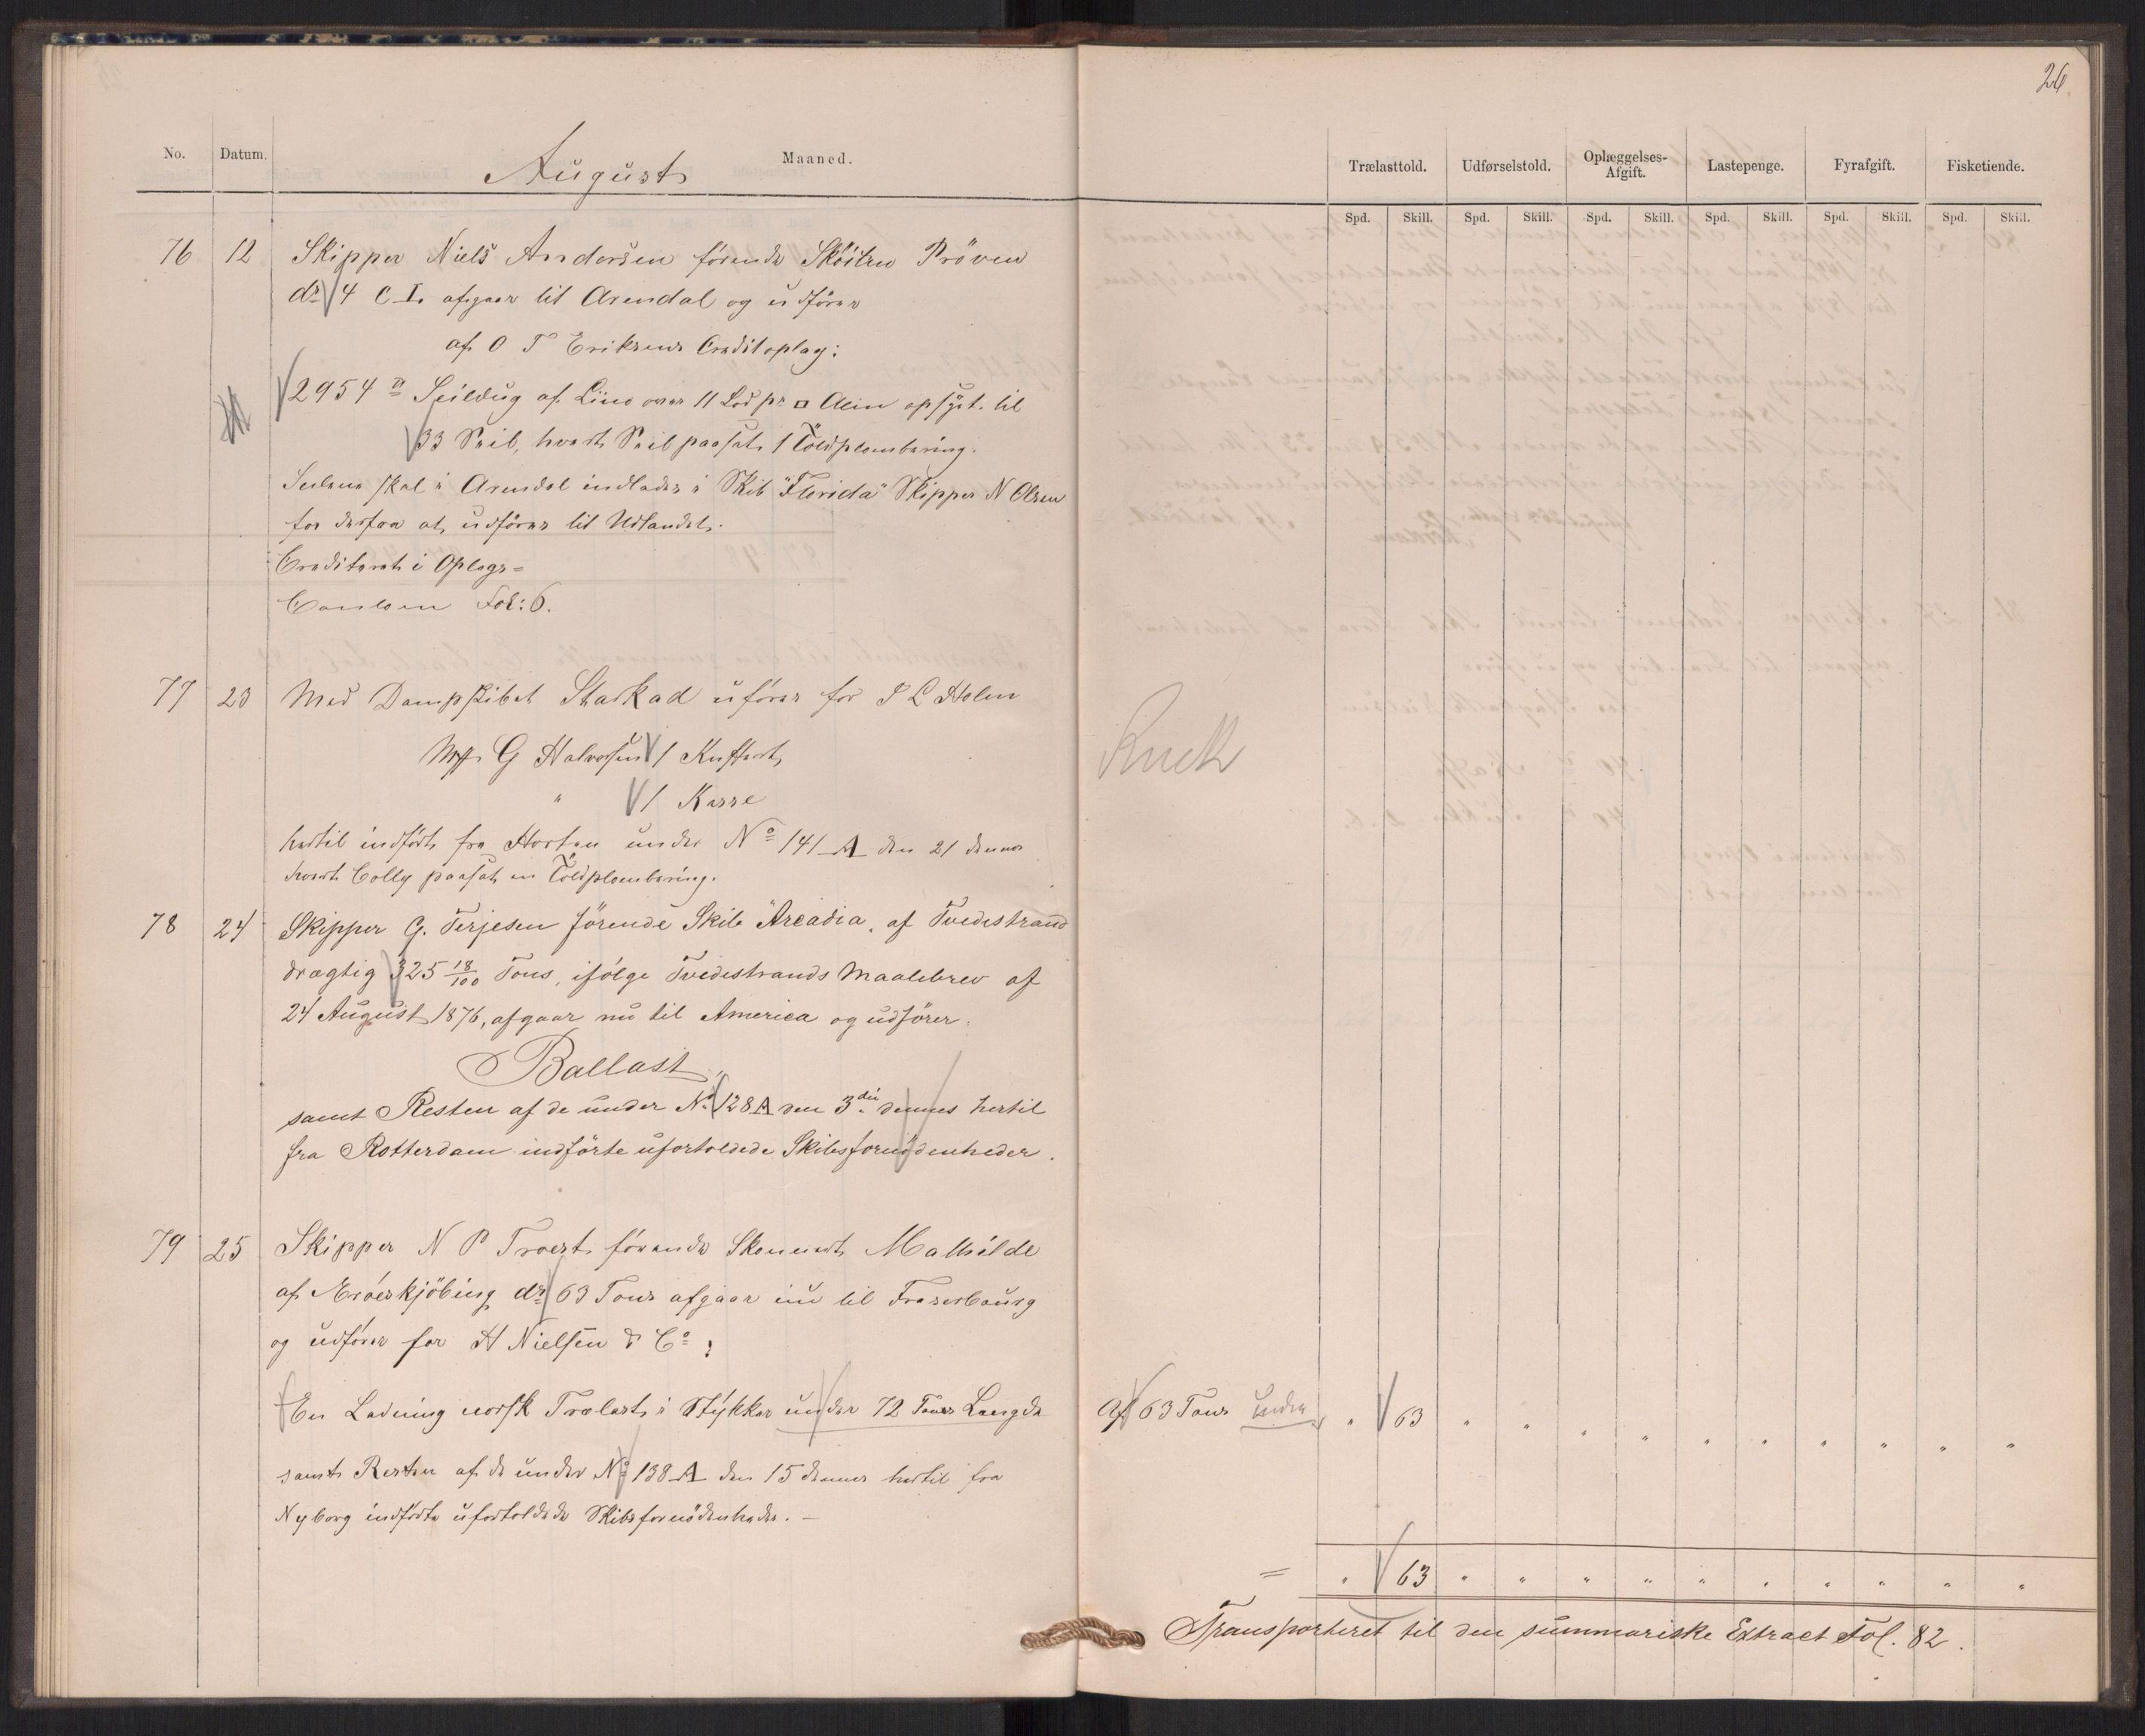 26
No. Datum. August Maaned.
Trælasttold. Udførselstold. Oplæggelses-Afgift. Lastepenge. Fyrafgift. Fisketiende.
Spd. Skill. Spd. Skill. Spd. Skill. Spd. Skill. Spd. Skill. Spd. Skill.
76 12 Skipper Niels Andersen förende Sköiten Pröven
dr 4 C L. afgaar til Arendal og udförer
af O T Eriksens Creditoplag:
2954 ℔ Seildug af Liin over 11 Lod pr □ Alen opsyet til
33 Seil, hvert Seil paasat 1 Toldplombering.
Seilene skal i Arendal indlades i Skib "Florida" Skipper N Olsen
for derfra at udföres til Udlandet.
Crediteret i Oplags=
Contoen Fol: 6.
77 23 Med Dampskibet Starkad uförer for P L Holm
Mrk G Halvorsen 1 Kuffert
" 1 Kasse
hertil indfört fra Horten under No 141 A den 21 dennes
hvert Colly paasat en Toldplombering.
78 24 Skipper G. Terjesen förende Skib "Arcadia" af Tvedestrand
drægtig 325 18/100 Tons, ifölge Tvedestrands Maalebrev af
24 August 1876, afgaar nu til America og udförer:
Ballast
samt Resten af de under No 128 A den 3die dennes hertil
fra Rotterdam indförte ufortoldede Skibsfornödenheder.
79 25 Skipper N P Troest förende Skonnert Mathilde
af Æröeskjöbing dr 63 Tons afgaar nu til Fraserbourg
og udförer for H Nielsen & Co:
En Ladning norsk Trælast i Stykker under 12 Fods Længde
Af 63 Tons under " 63 " " " " " " " " " "
samt Resten af de under No 138 A den 15 dennes hertil fra
Nyborg indförte ufortoldede Skibsfornödenheder. —
= " 63 " " " " " " " " " "
Transporteret til den summariske Extract Fol. 82.